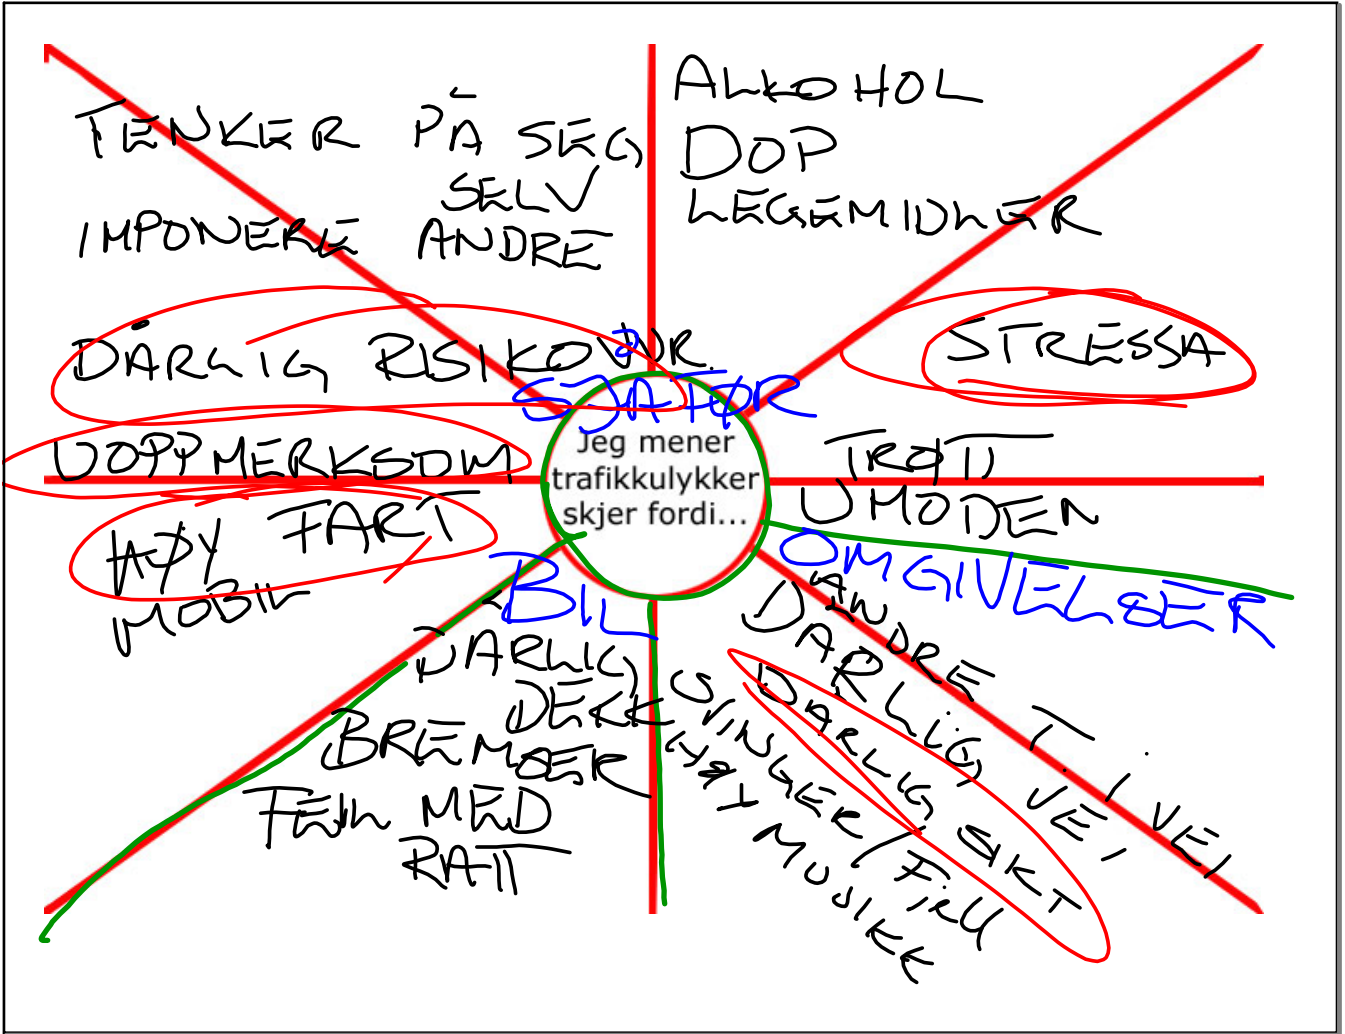 TENKER PÅ SEG
SELV
IMPONERE ANDRE
ALKOHOL
DOP
LEGEMIDLER
DÅRLIG RISIKOVUR.
STRESSA
SJÅFØR
UOPPMERKSOM
HØY FART
MOBIL
Jeg mener
trafikkulykker
skjer fordi...
TRØTT
UMODEN
OMGIVELSER
BIL
DÅRLIG
DEKK
BREMSER
FEIL MED
RATT
ANDRE I VEI
DÅRLIG VEI
DÅRLIG SIKT
SVINGER/FJELL
HØY MUSIKK